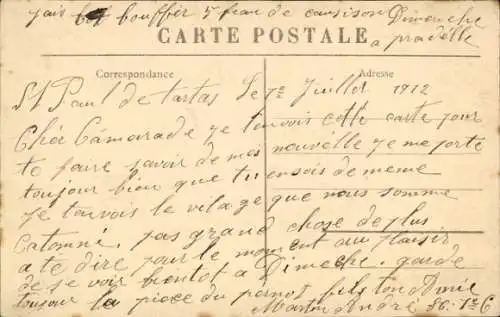 jais bouffer 5 peau de causison Dimenche
a pradelle
CARTE POSTALE
Correspondance
Adresse
St Paul de tartas le 7e Juillor 1912
Cher Camarade je tenvois cette carte pour
te faire savoir de mes nouvelle je me porte
toujour bien que tu ensois de meme
je tenvois le vilage que nous somme
Catonné, pas grand chose de plus
a te dire pour le moment au plaisir
de se voir bientot a Dimeche. garde
toujour la piece du pernot fils ton Amie
Martin André 38. 7e C